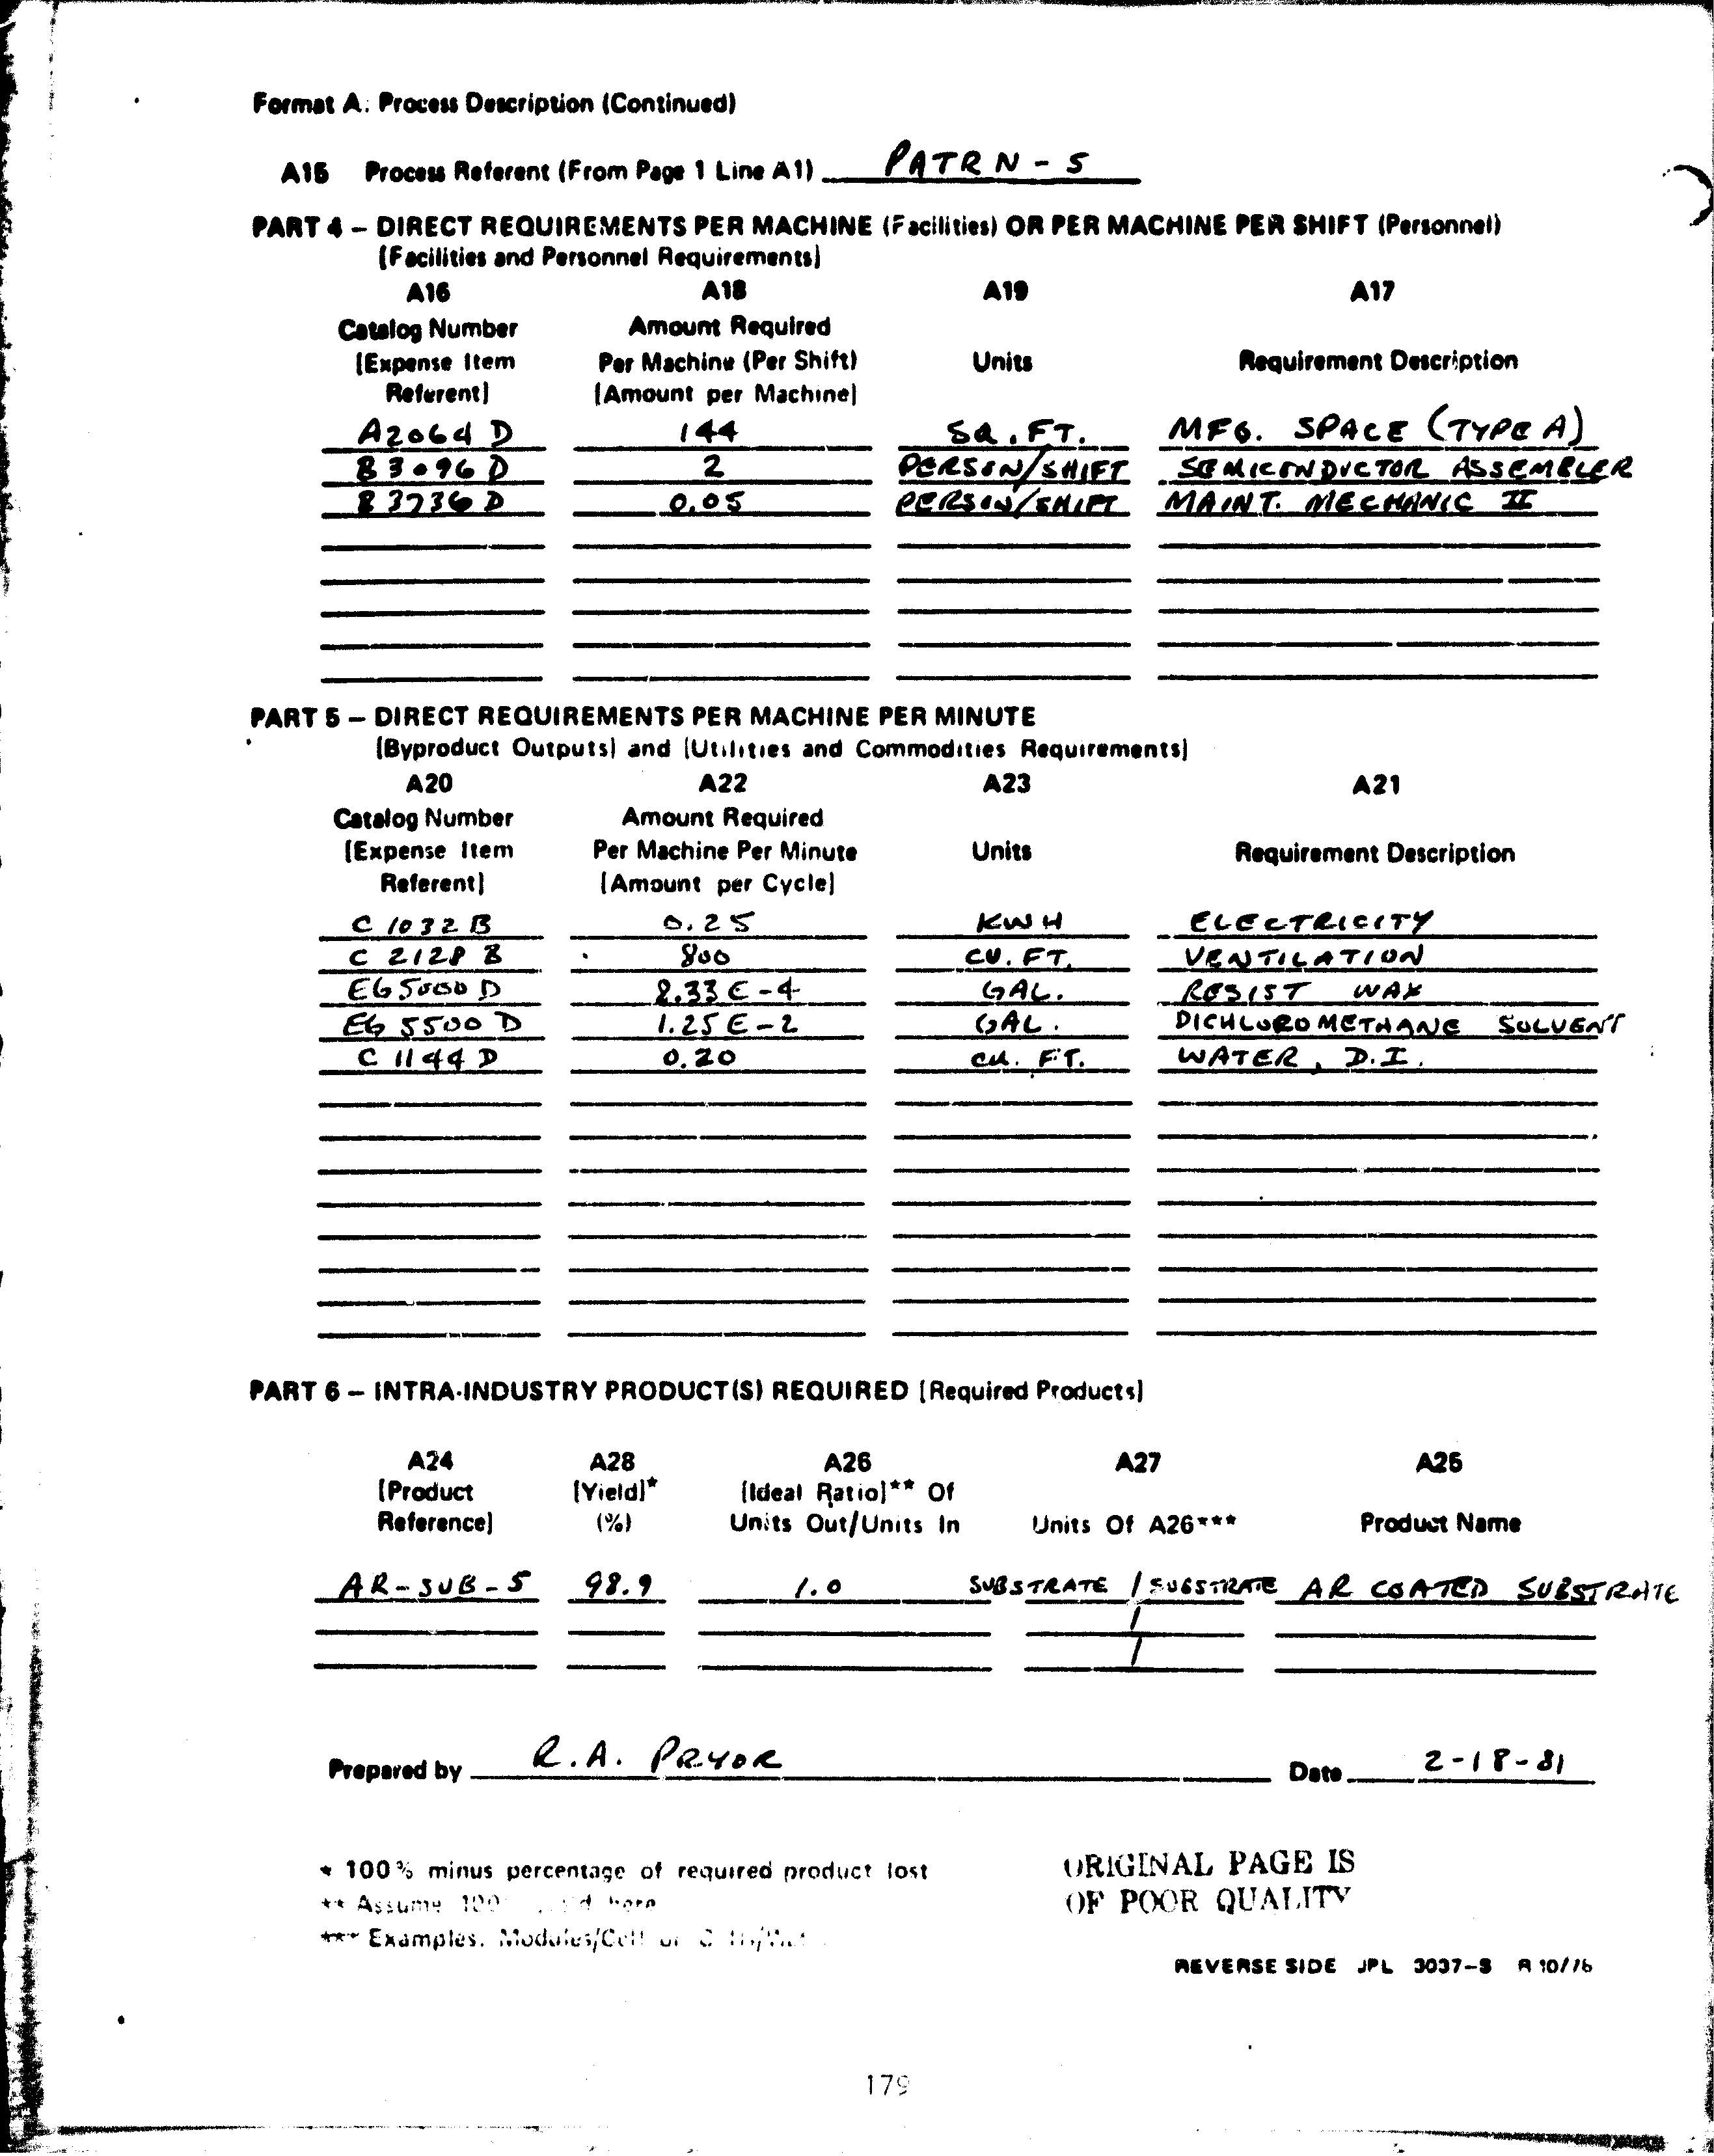 Format A: Process Description (Continued)
A15 Process Referent (From Page 1 Line A1) PATRN-5
PART 4 – DIRECT REQUIREMENTS PER MACHINE (Facilities) OR PER MACHINE PER SHIFT (Personnel)
[Facilities and Personnel Requirements]
A16 A18 A19 A17
Catalog Number Amount Required
[Expense Item Per Machine (Per Shift) Units Requirement Description
Referent] [Amount per Machine]
A2064 D 144 SQ. FT. MFG. SPACE (TYPE A)
B3096 D 2 PERSON/SHIFT SEMICONDUCTOR ASSEMBLER
B3736 D 0.05 PERSON/SHIFT MAINT. MECHANIC II
PART 5 – DIRECT REQUIREMENTS PER MACHINE PER MINUTE
[Byproduct Outputs] and [Utilities and Commodities Requirements]
A20 A22 A23 A21
Catalog Number Amount Required
[Expense Item Per Machine Per Minute Units Requirement Description
Referent] [Amount per Cycle]
C 1032 B 0.25 KWH ELECTRICITY
C 2128 B 800 CU. FT. VENTILATION
EG5000 D 8.33 E-4 GAL. RESIST WAX
EG 5500 D 1.25 E-2 GAL. DICHLOROMETHANE SOLVENT
C 1144 D 0.20 CU. FT. WATER, D.I.
PART 6 – INTRA-INDUSTRY PRODUCT(S) REQUIRED [Required Products]
A24 A28 A26 A27 A25
[Product [Yield]* [Ideal Ratio]** Of
Reference] (%) Units Out/Units In Units Of A26*** Product Name
AR-SUB-5 98.9 1.0 SUBSTRATE / SUBSTRATE AR COATED SUBSTRATE
/
/
Prepared by R.A. PRYOR Date 2-18-81
* 100% minus percentage of required product lost
** Assume here
*** Examples: Modules/Cell or
ORIGINAL PAGE IS
OF POOR QUALITY
REVERSE SIDE JPL 3037-S R 10/76
179